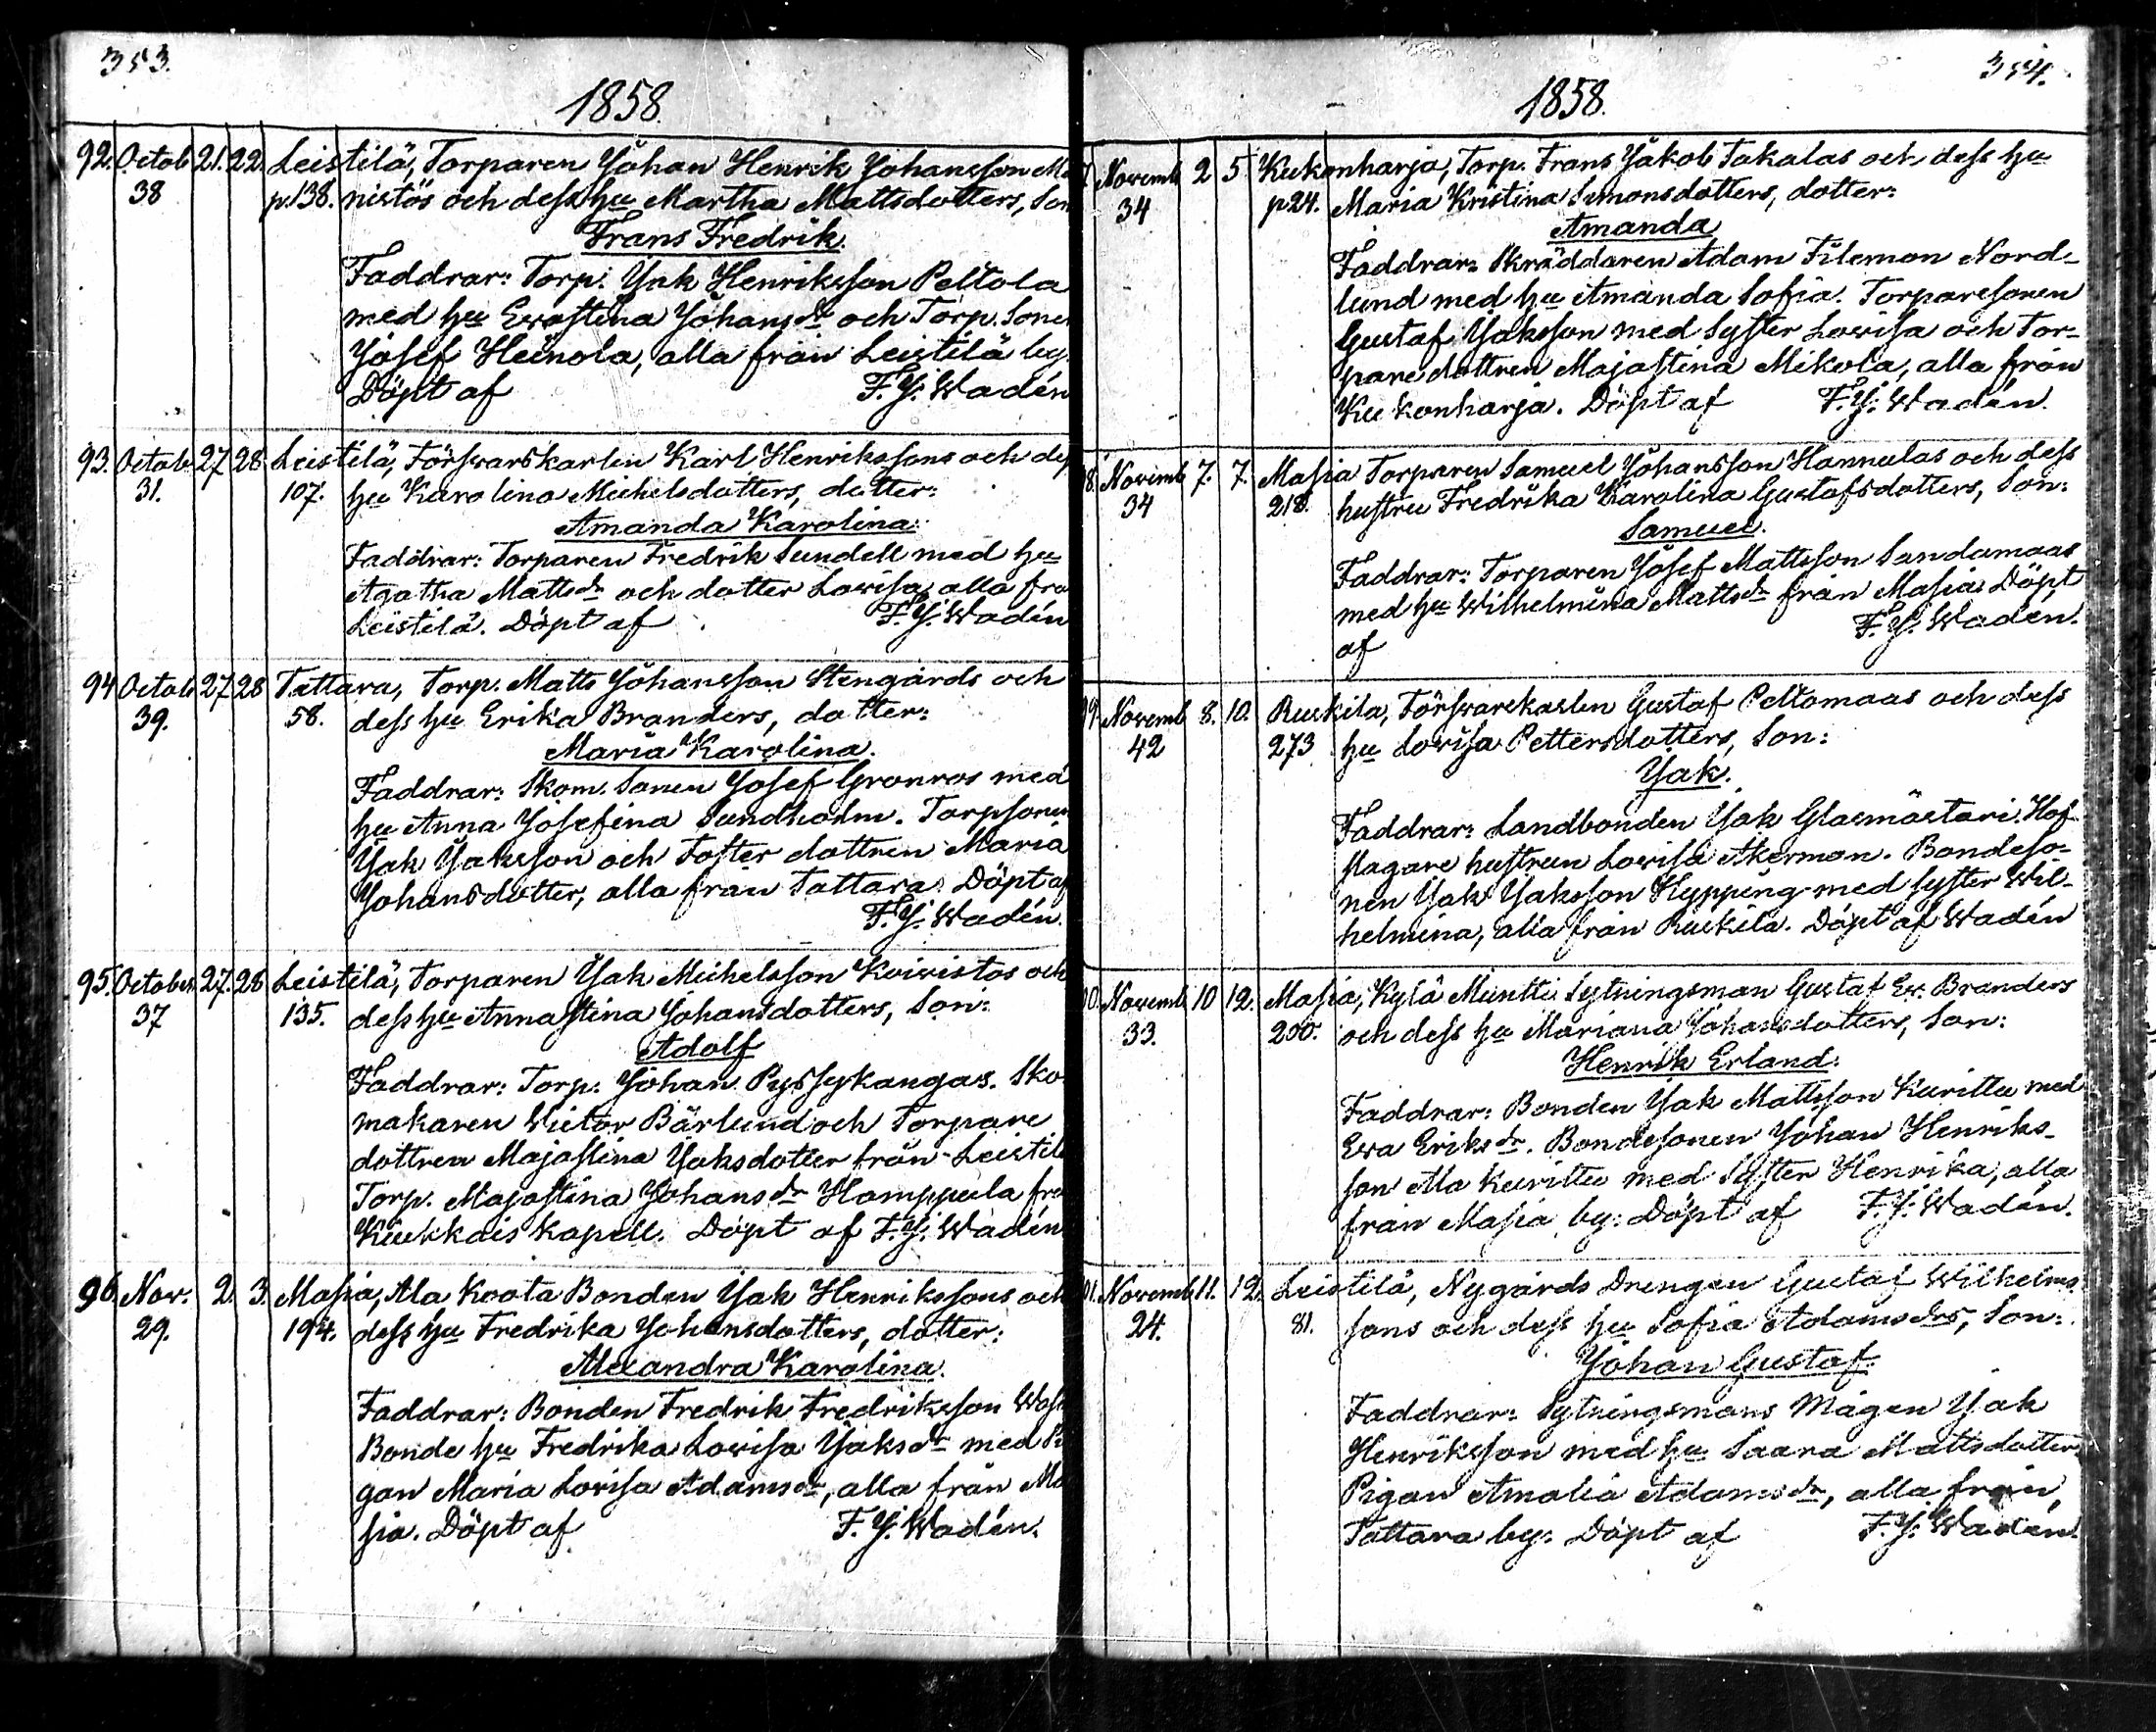 353.
1858.
92. Octob 21. 22. Leistilä, Torparen Johan Henrik Johansson
38 p.138. nistös och dess hu Martha Mattsdotters, Son
Frans Fredrik.
Faddrar: Torp. Jak Henriksson Peltola
med hu Evastina Johansdr och Torp. Sonen
Josef Heinola, alla från Leistilä by.
Döpt af F. J. Wadén
93. Octob 27 28 Leistilä, Försvarskarlen Karl Henrikssons och dess
31. 107. hu Karolina Michelsdotters, dotter:
Amanda Karolina:
Faddrar: Torparen Fredrik Sundell med hu
Agatha Mattsdr och dotter Lovisa, alla frå
Leistilä. Döpt af F. J. Wadén
94 Octob 27 28 Tattara, Torp. Matts Johansson Stengårds och
39. 58. dess hu Erika Branders, dotter:
Maria Karolina.
Faddrar: Skom. Sonen Josef Gronros med
hu Anna Josefina Sundholm. Torpsonen
Jak Jaksson och Foster dottren Maria
Johansdotter, alla från Tattara. Döpt af
F. J. Wadén.
95. October 27. 28 Leistilä, Torparen Jak Michelsson Koivistos och
37 135. dess hu Annastina Johansdotters, Son:
Adolf
Faddrar: Torp: Johan Pyssykangas. Sko
makaren Victor Bärlund och Torpare
dottren Majastina Jaksdotter från Leistilä
Torp. Majastina Johansdr Hamppula frå
Kiukkais Kapell. Döpt af F. J. Wadén
96. Nov: 2. 3. Masia, Ala Koota Bonden Jak Henrikssons och
29. 194. dess hu Fredrika Johansdotters, dotter:
Alexandra Karolina.
Faddrar: Bonden Fredrik Fredriksson
Bonde hu Fredrika Lovisa Jaksdr med Pi
gan Maria Lovisa Adamsdr, alla från Ma
sia. Döpt af F. J. Wadén.
354.
1858.
7. Novemb 2 5. Kukonharja, Torp. Frans Jakob Takalas och dess hu
34 p24. Maria Kristina Simonsdotters, dotter:
Amanda
Faddrar: Skräddaren Adam Filemon Nord-
lund med hu Amanda Sofia. Torparesonen
Gustaf Jaksson med Syster Lovisa och Tor-
pare dottren Majastina Mikola, alla från
Kukonharja. Döpt af F. J. Wadén.
8. Novemb 7. 7. Masia Torparen Samuel Johansson Hannulas och dess
34 218. hustru Fredrika Karolina Gustafsdotters, Son:
Samuel.
Faddrar: Torparen Josef Mattsson Sandamaas
med hu Wilhelmina Mattsdr från Masia. Döpt
af F. J. Wadén.
99. Novemb 8. 10. Ruskila, Försvarskarlen Gustaf Peltomaas och dess
42 273 hu Lovisa Pettersdotters, Son:
Jak.
Faddrar: Landbonden Jak Glasmästari. Hof
slagare hustrun Lovisa Akerman. Bondeso-
nen Jak Jaksson Hypping med Syster Wil-
helmina, alla från Ruskila. Döpt af Wadén
00. Novemb 10 12. Masia, Kylä Munttu Sytningsman Gustaf Er. Branders
33. 200. och dess hu Mariana Johansdotters, Son:
Henrik Erland:
Faddrar: Bonden Jak Mattsson Kurittu med
Eva Eriksdr. Bondesonen Johan Henriks-
son Ala Kurittu med Syster Henrika, alla
från Masia by: Döpt af F. J. Wadén.
01. Novemb 11. 12. Leistilä, Nygårds Drengen Gustaf Wilhelms-
24. 81. sons och dess hu Sofia Adamsdrs, Son:
Johan Gustaf.
Faddrar: Sytningsmans Mågen Jak
Henriksson med hu Saara Mattsdotter.
Pigan Amalia Adamsdr, alla från
Tattara by: Döpt af F. J. Wadén.